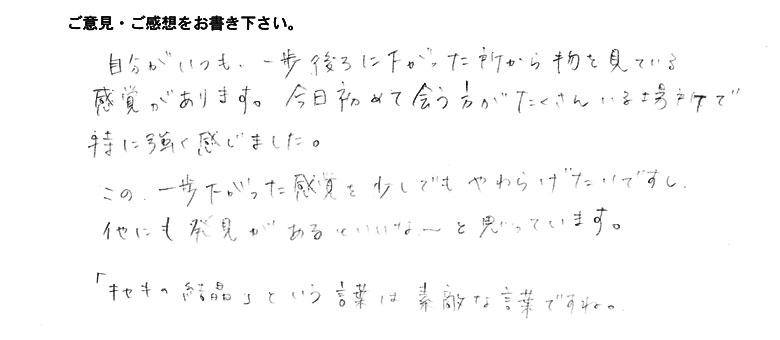 ご意見・ご感想をお書き下さい。
自分がいつも、一歩後ろに下がった所から物を見ている
感覚があります。今日初めて会う方がたくさんいる場所で
特に強く感じました。
この、一歩下がった感覚を少しでもやわらげたいですし、
他にも発見があるといいな〜と思っています。
「キセキの結晶」という言葉は素敵な言葉ですね。